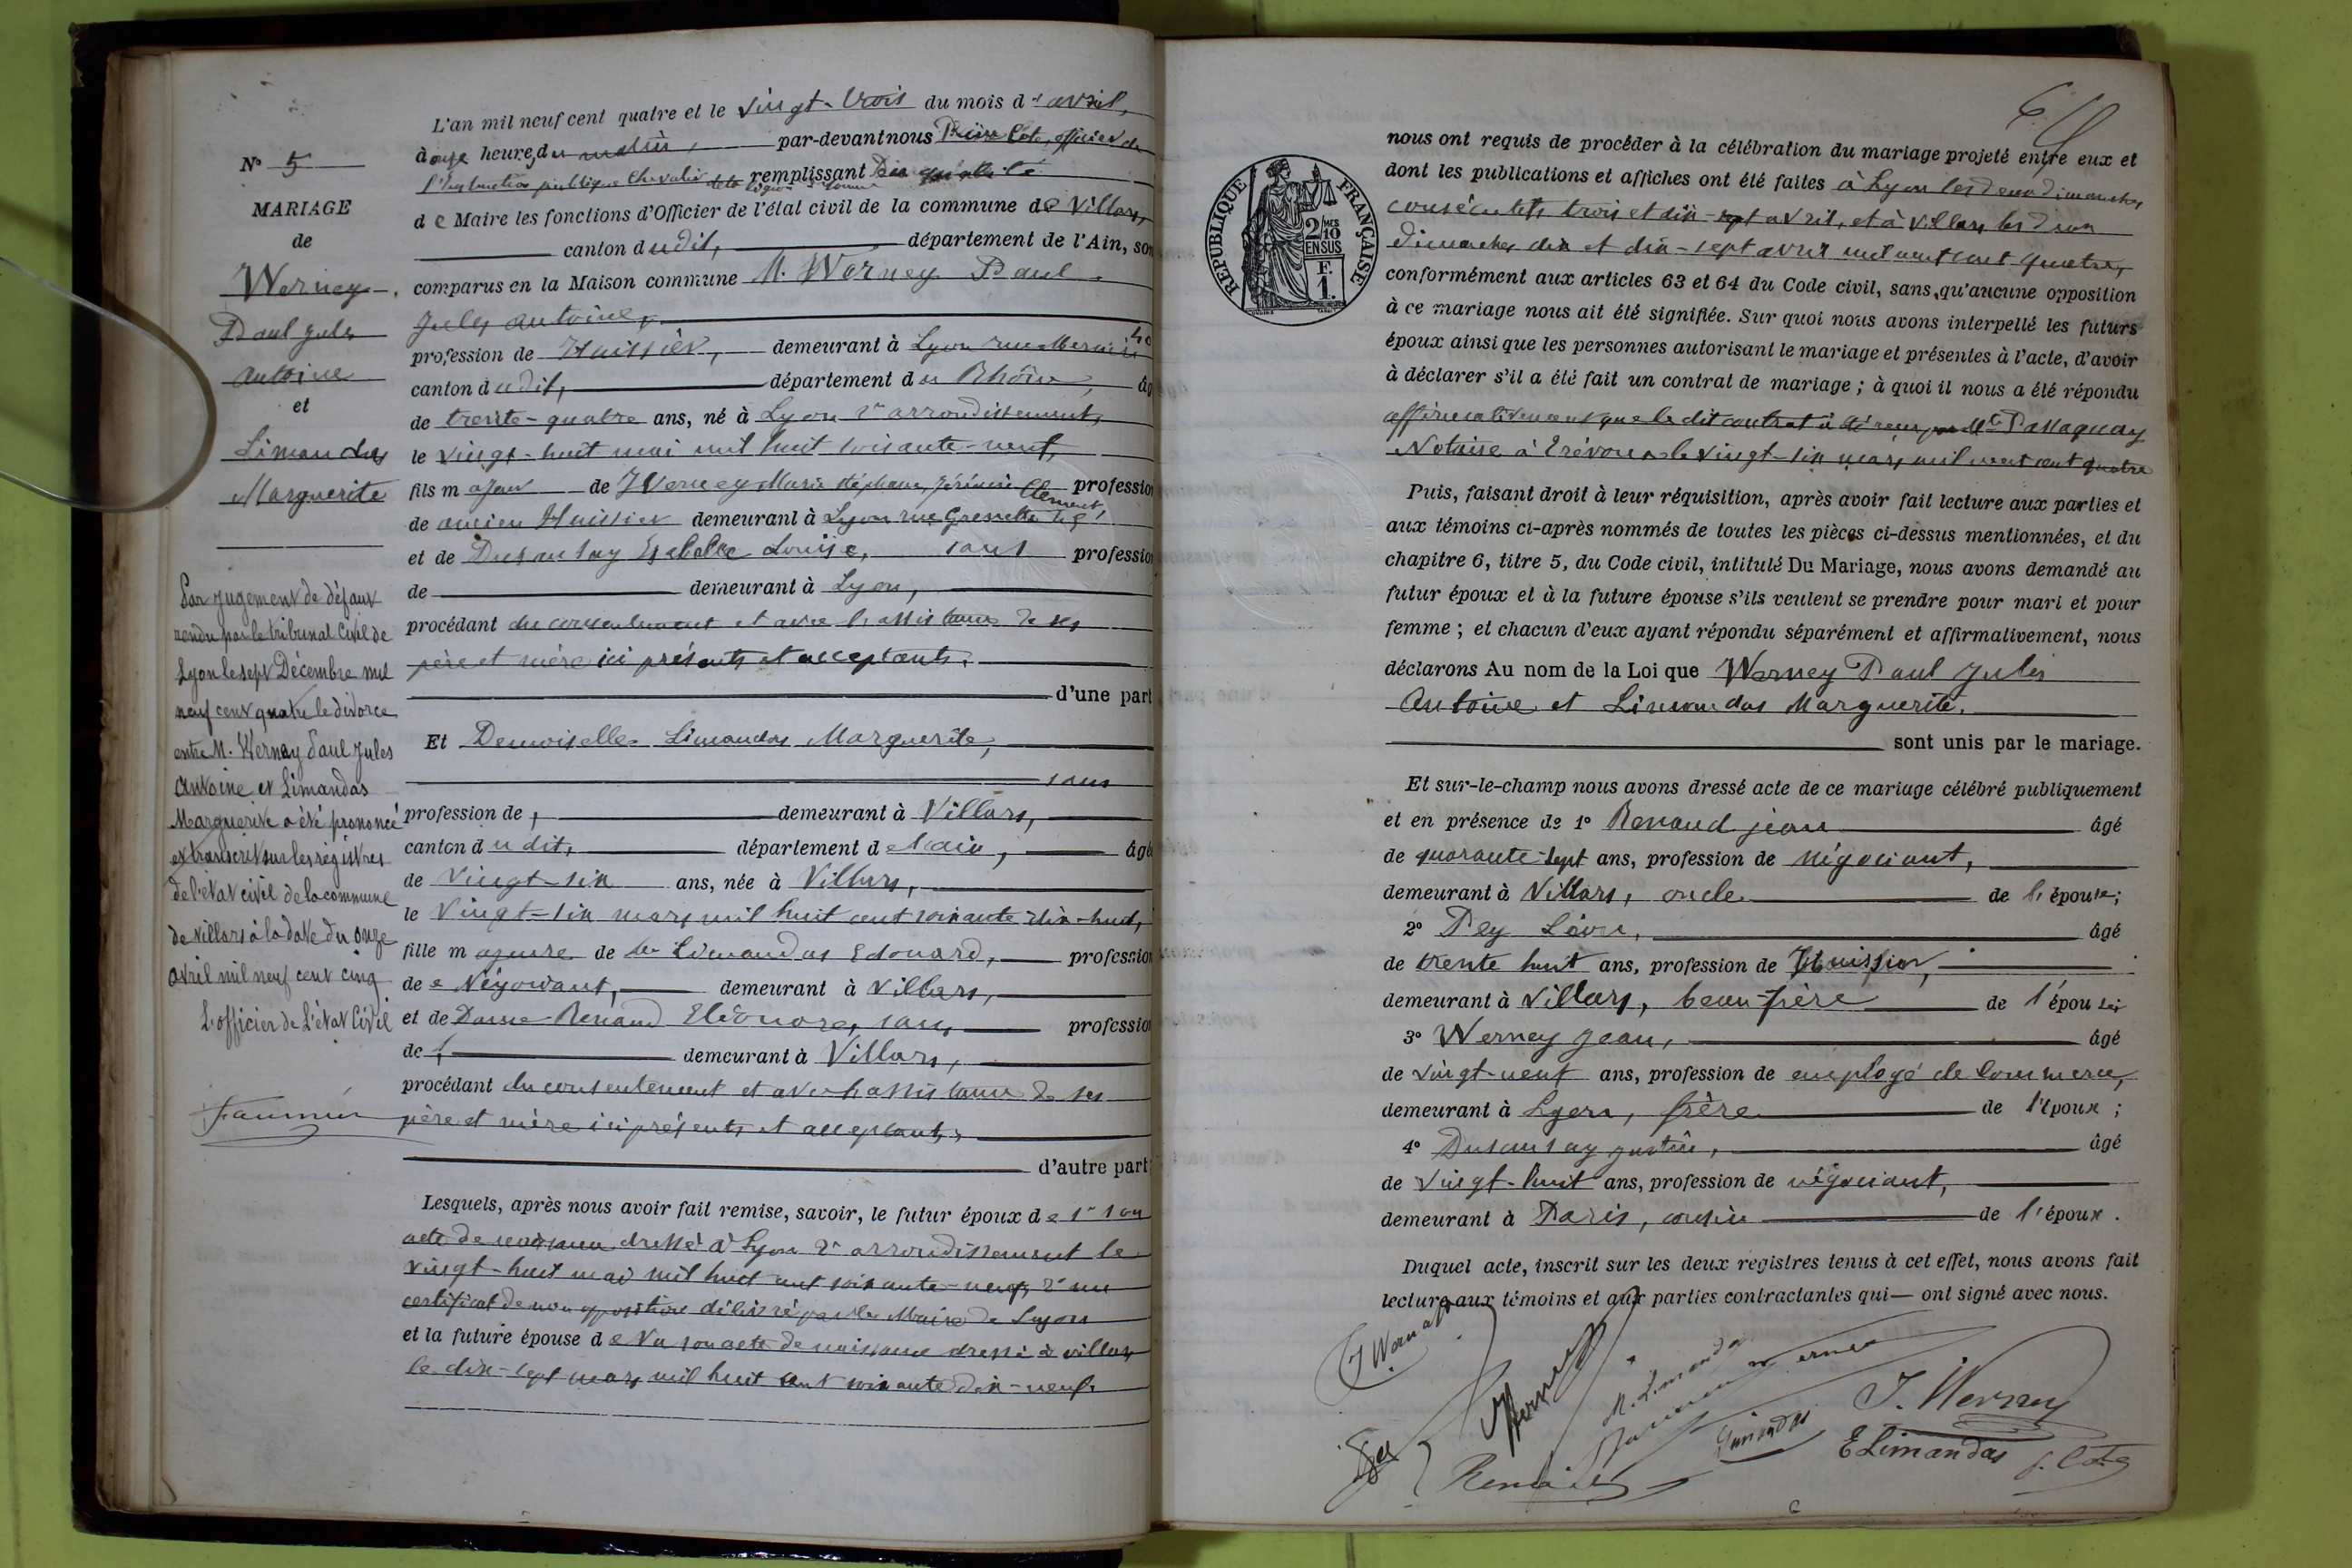 N° 5
MARIAGE
de
Werney
Paul Jules
Antoine
et
Limandas
Marguerite
Par jugement de défaut
rendu par le tribunal Civil de
Lyon le sept Décembre mil
neuf cent quatre le divorce
entre M. Werney Paul Jules
Antoine et Limandas
Marguerite a été prononcé
et transcrit sur les registres
de l'état civil de la commune
de Villars à la date du onze
avril mil neuf cent cinq
L'officier de L'état Civil
L'an mil neuf cent quatre et le vingt-trois du mois d' avril,
à onze heures du matin, par-devant nous Côte, officier de
l'Instruction publique Chevalier de la Légion d'honneur remplissant
de Maire les fonctions d'Officier de l'état civil de la commune de Villars,
canton dudit, département de l'Ain, son
comparus en la Maison commune M. Werney Paul
Jules Antoine,
profession de Huissier, demeurant à Lyon rue Mercière
canton dudit, département du Rhône, âg
de trente-quatre ans, né à Lyon 2e arrondissement,
le vingt-huit mai mil huit soixante-neuf,
fils majeur de Werney Marie Stéphane Clément, profession
de ancien Huissier demeurant à Lyon rue Grenette
et de Dusausay Isabelle Louise, sans profession
de demeurant à Lyon,
procédant du consentement et avec l'assistance de ses
père et mère ici présents et acceptants.
d'une part
Et Demoiselle Limandas Marguerite,
sans
profession de, demeurant à Villars,
canton dudit, département de l'ain, âgé
de vingt-six ans, née à Villars,
le vingt-six mars mil huit cent soixante dix-huit,
fille majeure de Limandas Edouard, profession
de Négociant, demeurant à Villars,
et de Dame Renaud Eléonore, sans profession
de, demeurant à Villars,
procédant du consentement et avec l'assistance de ses
père et mère ici présents et acceptants,
d'autre part
Lesquels, après nous avoir fait remise, savoir, le futur époux de 1° son
acte de naissance dressé à Lyon 2e arrondissement le
vingt-huit mai mil huit cent soixante-neuf, 2° un
certificat de non opposition délivré par le Maire de Lyon
et la future épouse de son acte de naissance dressé à villars
le dix-sept mars mil huit cent soixante dix-neuf.
6
RÉPUBLIQUE FRANÇAISE
2/10 EN SUS
F.
1.
nous ont requis de procéder à la célébration du mariage projeté entre eux et
dont les publications et affiches ont été faites à Lyon les deux dimanches
consécutifs trois et dix-sept avril, et à Villars les deux
dimanches dix et dix-sept avril mil neuf cent quatre,
conformément aux articles 63 et 64 du Code civil, sans qu'aucune opposition
à ce mariage nous ait été signifiée. Sur quoi nous avons interpellé les futurs
époux ainsi que les personnes autorisant le mariage et présentes à l'acte, d'avoir
à déclarer s'il a été fait un contrat de mariage ; à quoi il nous a été répondu
affirmativement que le dit contrat a été reçu par Me
Notaire à Trévoux le vingt-six mars mil neuf cent quatre
Puis, faisant droit à leur réquisition, après avoir fait lecture aux parties et
aux témoins ci-après nommés de toutes les pièces ci-dessus mentionnées, et du
chapitre 6, titre 5, du Code civil, intitulé Du Mariage, nous avons demandé au
futur époux et à la future épouse s'ils veulent se prendre pour mari et pour
femme ; et chacun d'eux ayant répondu séparément et affirmativement, nous
déclarons Au nom de la Loi que Werney Paul Jules
Antoine et Limandas Marguerite.
sont unis par le mariage.
Et sur-le-champ nous avons dressé acte de ce mariage célébré publiquement
et en présence de 1° Renaud jean âgé
de quarante-sept ans, profession de négociant,
demeurant à Villars, oncle de l'épouse;
2° Pey âgé
de trente huit ans, profession de Huissier,
demeurant à Villars, beau-frère de l'épou
3° Werney Jean, âgé
de vingt-neuf ans, profession de employé de Commerce,
demeurant à Lyon, frère de l'époux ;
4° Dusausay Justin, âgé
de vingt-huit ans, profession de négociant,
demeurant à Paris, cousin de l'époux.
Duquel acte, inscrit sur les deux registres tenus à cet effet, nous avons fait
lecture aux témoins et aux parties contractantes qui— ont signé avec nous.
M. Limandas
Limandas
J. Werney
E Limandas